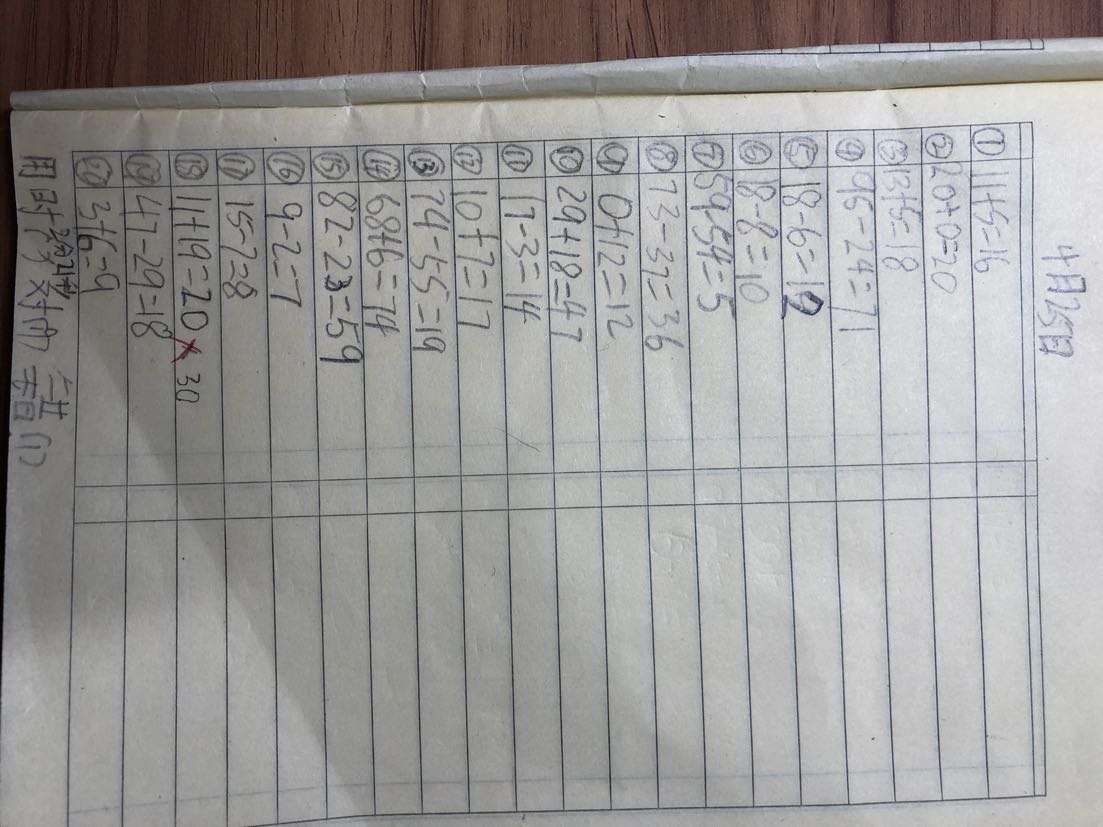 4月25日
① 11+5=16
② 20+0=20
③ 13+5=18
④ 95-24=71
⑤ 18-6=12
⑥ 18-8=10
⑦ 59-54=5
⑧ 73-37=36
⑨ 0+12=12
⑩ 29+18=47
⑪ 17-3=14
⑫ 10+7=17
⑬ 74-55=19
⑭ 68+6=74
⑮ 82-23=59
⑯ 9-2=7
⑰ 15-7=8
⑱ 11+19=20 × 30
⑲ 47-29=18
⑳ 3+6=9
用时